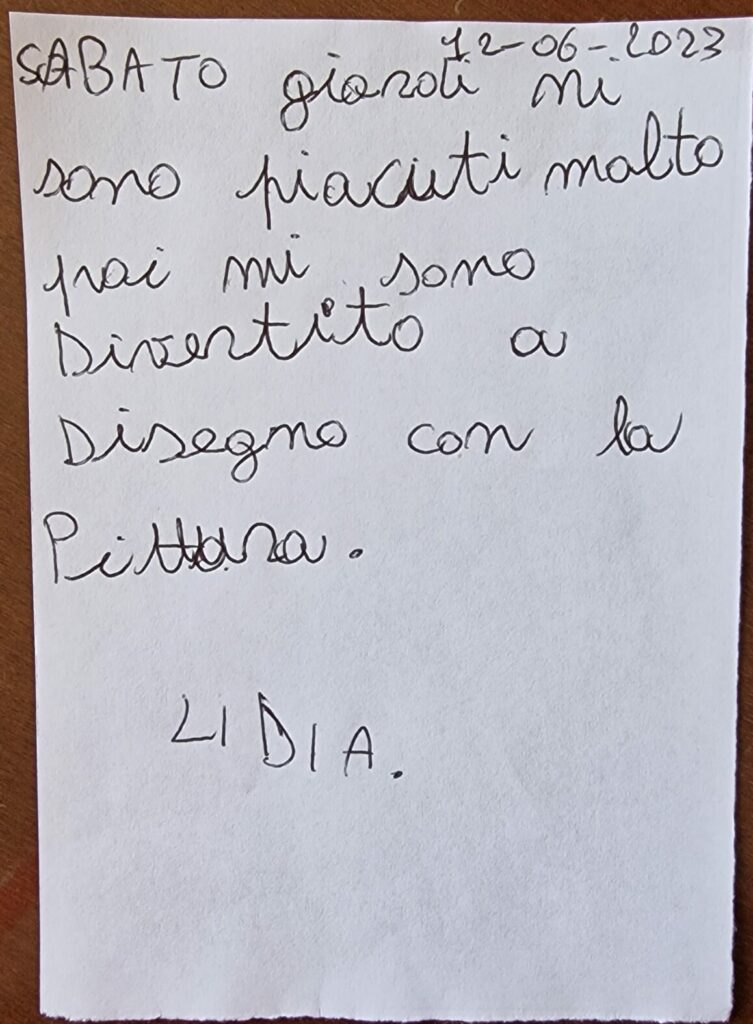 12-06-2023
SABATO giaroli mi
sono piaciuti molto
poi mi sono
Divertito a
Disegno con la
Pittura.
LIDIA.